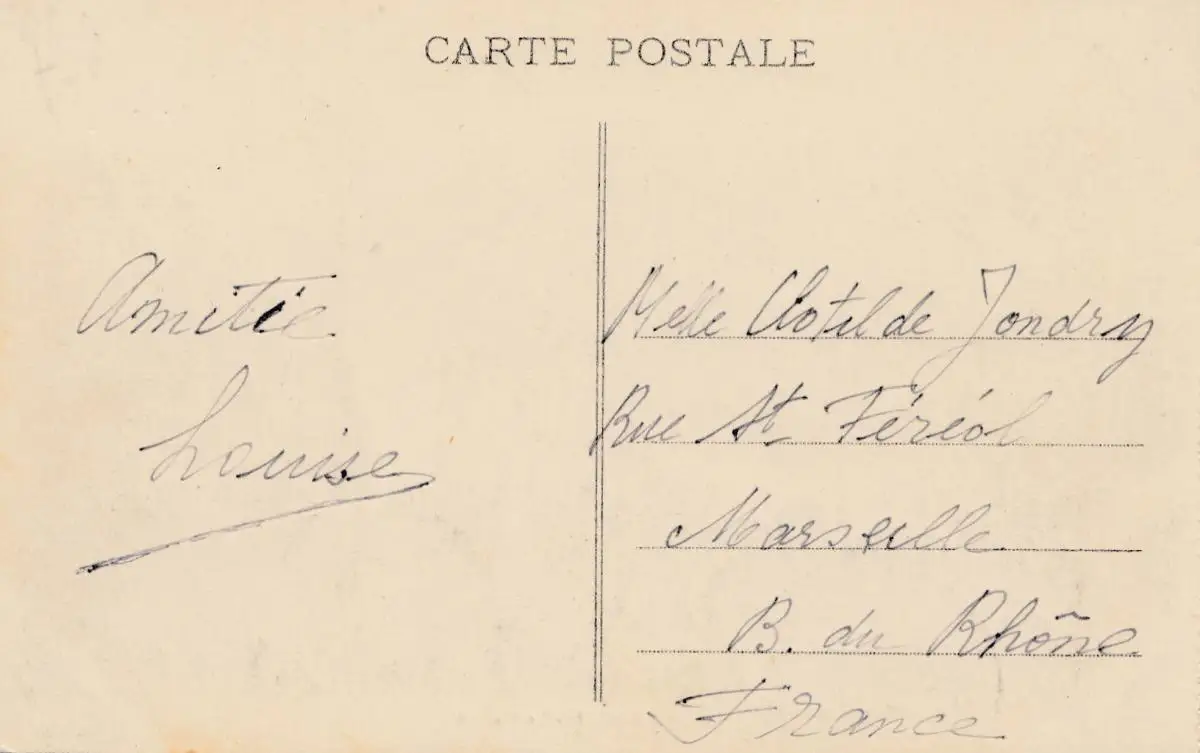 CARTE POSTALE
Amitié
Louise
Melle Clotilde Jondry
Rue St Féréol
Marseille
B. du Rhône
France